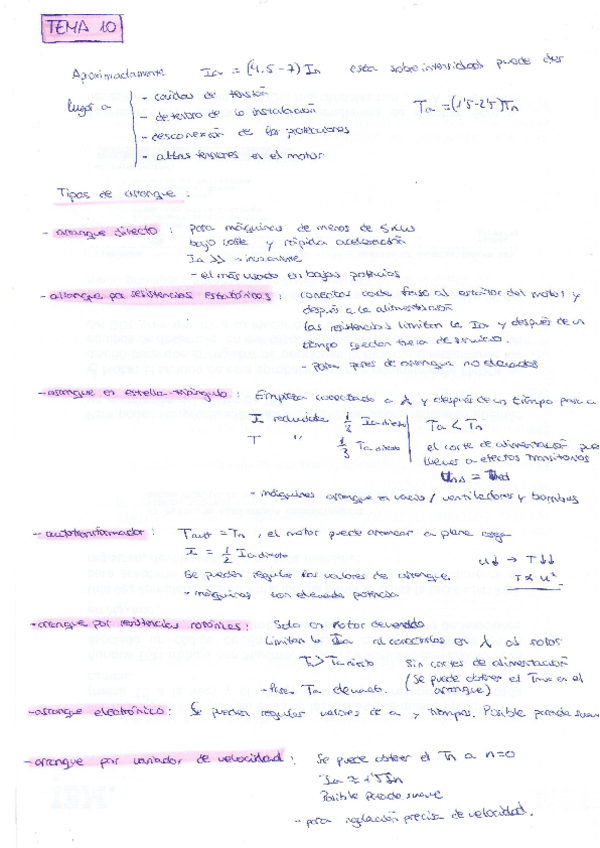 TEMA 10
Aproximadamente Ia = (4.5-7) In esta sobreintensidad puede dar
lugar a - caídas de tensión Ta = (1'5-2'5)Tn
- deterioro de la instalación
- desconexión de las protecciones
- altas tensiones en el motor
Tipos de arranque:
- arranque directo: para máquinas de menos de 5kW
bajo coste y rápida aceleración
Ia ↓↓ - inconveniente
- el más usado en bajas potencias
- arranque por resistencias estatóricas: conectar cada fase al estátor del motor y
después a la alimentación
las resistencias limitan la Ia y después de un
tiempo quedan fuera de servicio.
- para pares de arranque no elevados
- arranque en estrella-triángulo: Empieza conectado a λ y después de un tiempo pasa a
I reducida 1/3 Ia directo Ta < Tn
T " 1/3 Ta directo el corte de alimentación
a efectos transitorios
- máquinas arranque en vacío / ventiladores y bombas
- autotransformador: = Tn, el motor puede arrancar a plena carga
I = 1/2 Ia directo u↓ → T↓↓
Se pueden regular los valores de arranque. T α u²
- máquinas con elevada potencia
- arranque por resistencias rotóricas: Solo en rotor devanado
Limitan la Ia al conectarlas en λ al rotor
Ta > Ta directo Sin cortes de alimentación
- Para Ta elevado. (Se puede obtener el Tmax en el
arranque)
- arranque electrónico: Se pueden regular valores de a y tiempos. Posible parada suave
- arranque por variador de velocidad: Se puede obtener el Tn a n=0
Ia ≈ 1'5 In
Posible parada suave
- para regulación precisa de velocidad.